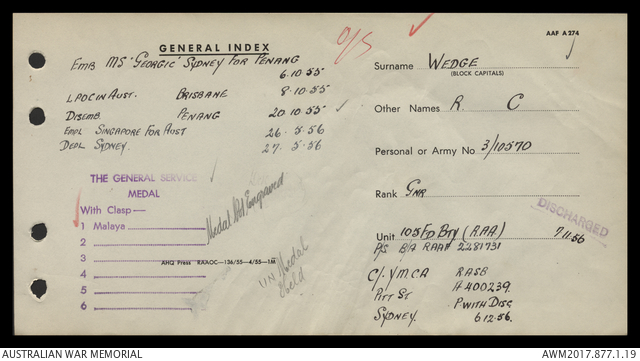 AAF A274
GENERAL INDEX
o/s
EMB MS 'GEORGIC' SYDNEY FOR PENANG
6.10.55
L POC IN AUST. BRISBANE 8.10.55
DISEMB. PENANG 20.10.55
EMPL SINGAPORE FOR AUST 26.5.56
DEPL SYDNEY. 27.5.56
THE GENERAL SERVICE
MEDAL
With Clasp—
1 Malaya
2
3
4
5
6
Medal Not Engraved
UN Medal
Held
AHQ Press RAAOC—136/55—4/55—1M
Surname WEDGE
(BLOCK CAPITALS)
Other Names R. C
Personal or Army No. 3/10570
Rank GNR
DISCHARGED
Unit 105 FD BTY (RAA) 7/11.56
P/S B/A RAAF 2281731
C/. Y.M.C.A RASB
PITT ST # 400239.
SYDNEY. P WITH DISC
6.12.56.
AUSTRALIAN WAR MEMORIAL
AWM2017.877.1.19